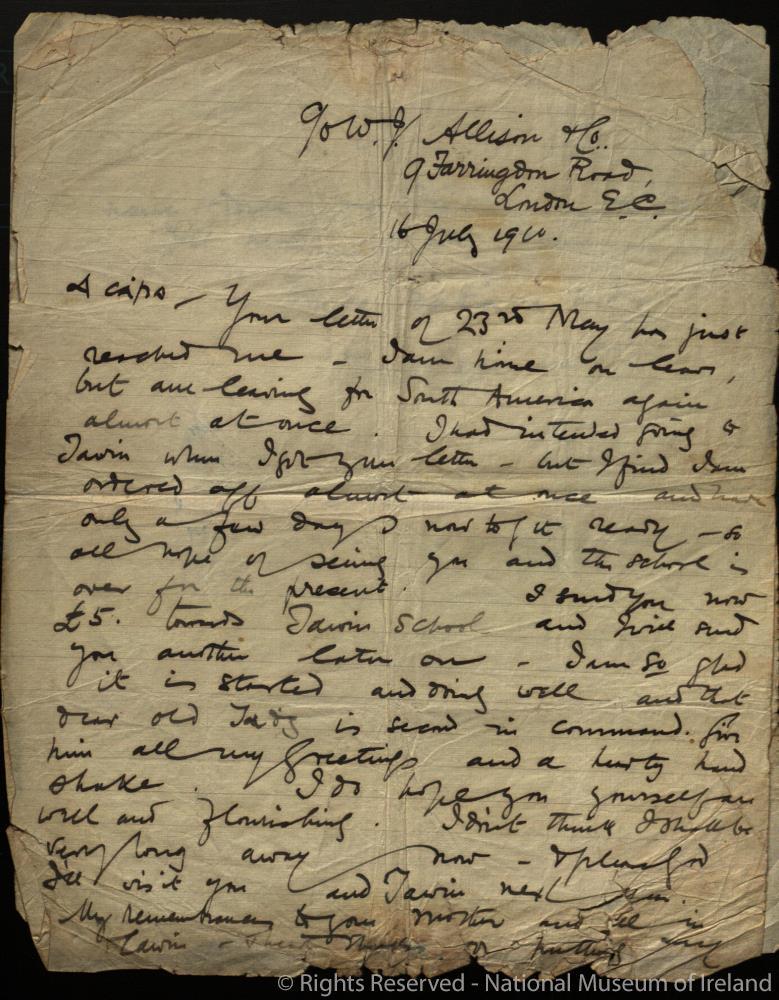 c/o W. J. Allison & Co.
9 Farringdon Road,
London E.C.
16 July 1910.
A cara — Your letter of 23rd May has just
reached me — I am home on leave,
but am leaving for South America again
almost at once. I had intended going to
Tawin when I got your letter — but I find I am
ordered off almost at once and have
only a few days now to get ready — so
all hope of seeing you and the school is
over for the present. I send you now
£5. towards Tawin School and I will send
you another later on — I am so glad
it is started and doing well and that
dear old is second in command. Give
him all my greetings and a hearty hand
shake. I do hope you yourself are
well and flourishing. I don't think I shall be
very long away now — & please God
I'll visit you and Tawin next year.
My remembrances to your mother and all in
Tawin — or putting
© Rights Reserved - National Museum of Ireland